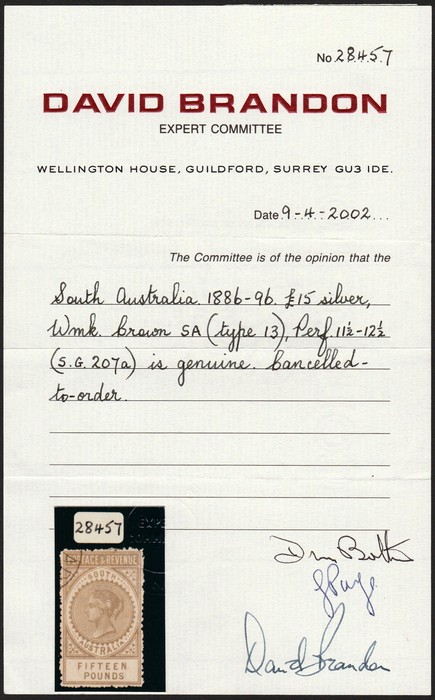 No. 28457
DAVID BRANDON
EXPERT COMMITTEE
WELLINGTON HOUSE, GUILDFORD, SURREY GU3 IDE.
Date 9-4-2002...
The Committee is of the opinion that the
South Australia 1886-96. £15 silver,
Wmk. Crown SA (type 13), Perf. 11½-12½
(S.G. 207a) is genuine. Cancelled-
to-order.
28457
POSTAGE & REVENUE
SOUTH
AUSTRALIA
FIFTEEN
POUNDS
David Brandon